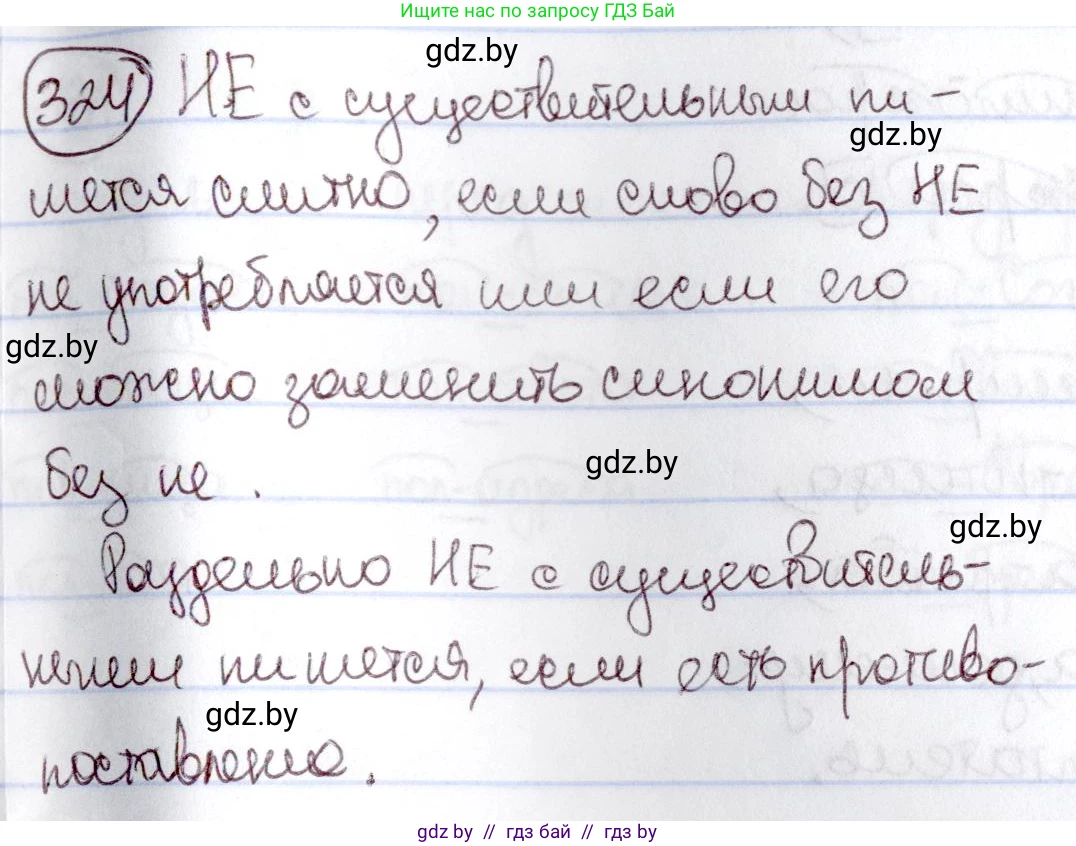 Ищите нас по запросу ГДЗ Бай
gdz.by
324 НЕ с существительными пи-
gdz.by
шется слитно, если слово без НЕ
не употребляется или если его
gdz.by
можно заменить синонимом
без не.
gdz.by
gdz.by
Раздельно НЕ с существитель-
ными пишется, если есть противо-
gdz.by
поставление.
gdz by // гдз бай // gdz by